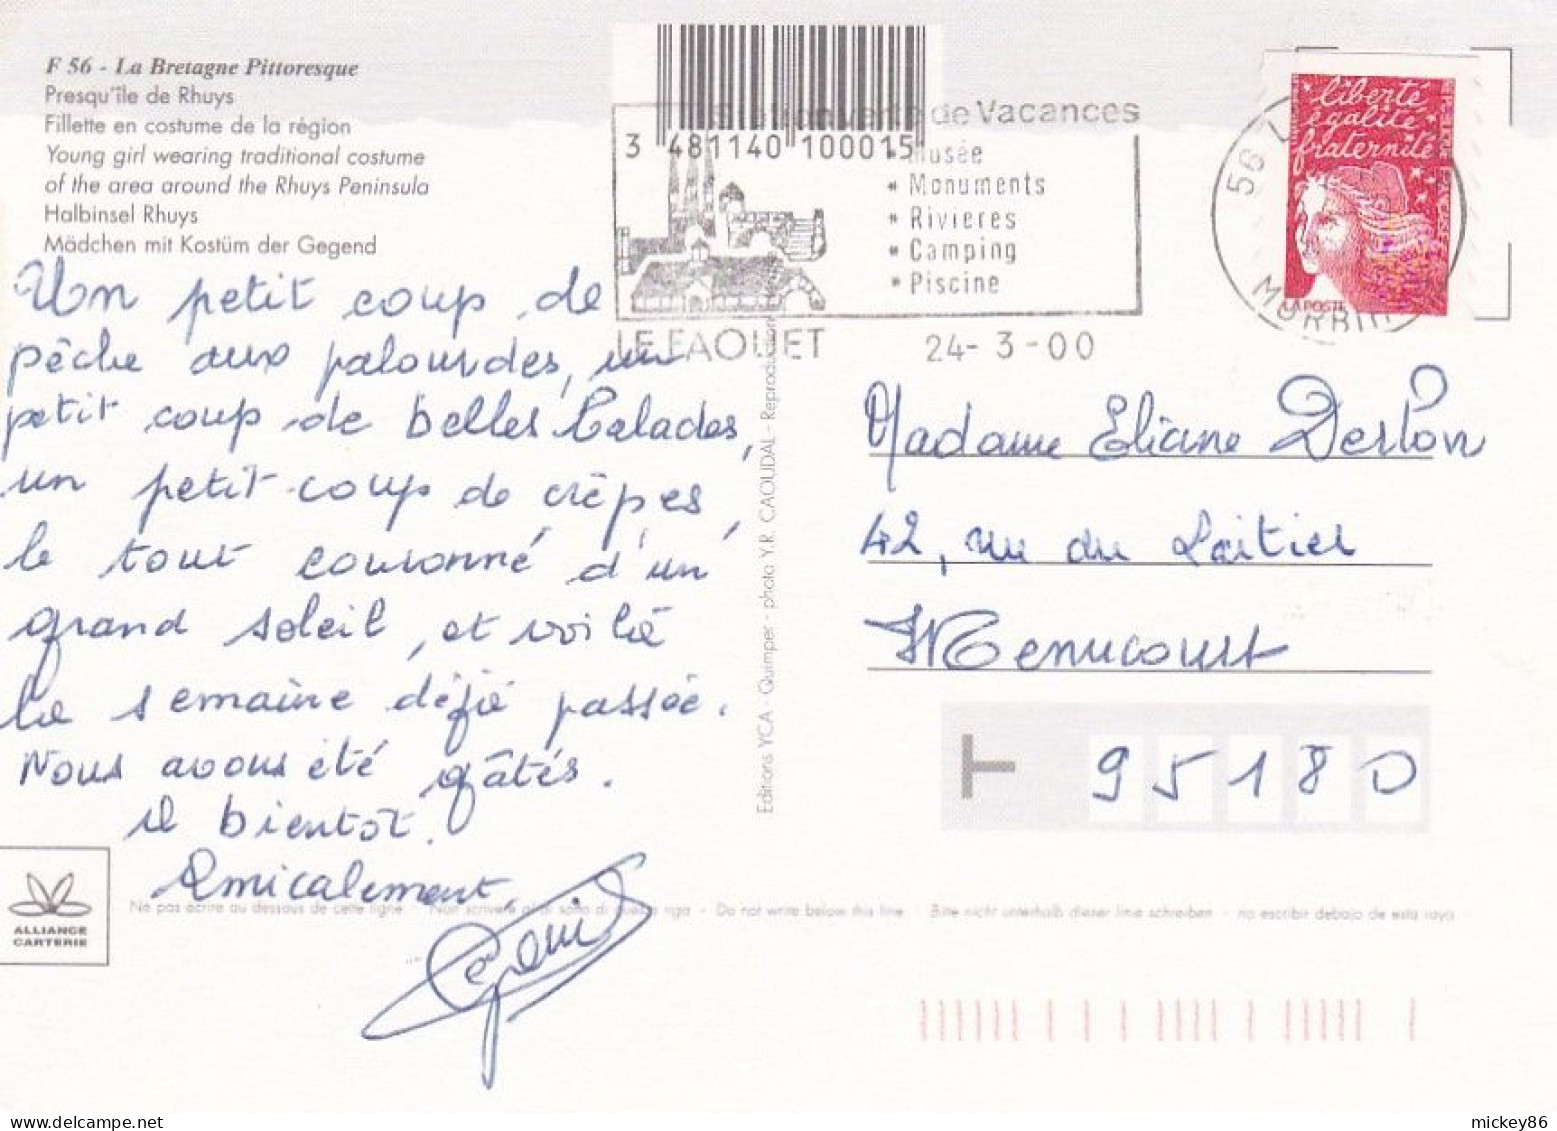 F 56 - La Bretagne Pittoresque
Presqu'île de Rhuys
Fillette en costume de la région
Young girl wearing traditional costume
of the area around the Rhuys Peninsula
Halbinsel Rhuys
Mädchen mit Kostüm der Gegend
Un petit coup de
pêche aux palourdes, un
petit coup de belles balades,
un petit coup de crêpes,
le tout couronné d'un
grand soleil, et voilà
la semaine déjà passée.
Nous avons été gâtés.
A bientôt.
Amicalement,
ALLIANCE
CARTERIE
Ne pas écrire au dessous de cette ligne - Non scrivere al di sotto di questa riga - Do not write below this line - Bitte nicht unterhalb dieser linie schreiben - no escribir debajo de esta raya
Editions YCA - Quimper - photo Y.R. CAOUDAL - Reproduction
3 481140 100015
de Vacances
* Musée
* Monuments
* Rivieres
* Camping
* Piscine
LE FAOUET
24-3-00
56 L
MORBIH
liberté
égalité
fraternité
LA POSTE
Madame Eliane Derlon
42, rue du Laitier
Menucourt
95180
mickey86